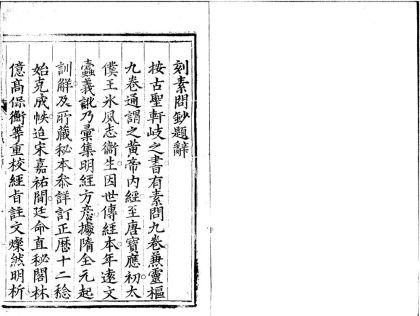 刻素問鈔題辭
按古聖軒岐之書有素問九卷兼靈樞
九卷通謂之黃帝內經至唐寶應初太
僕王氷夙志衞生因世傳經本年遠文
蠧義訛乃彙集明經方彥據隋全元起
訓解及所藏秘本叅詳訂正曆十二稔
始克成帙迨宋嘉祐間廷命直秘閣林
億高保衡等重校經旨註文燦然明析